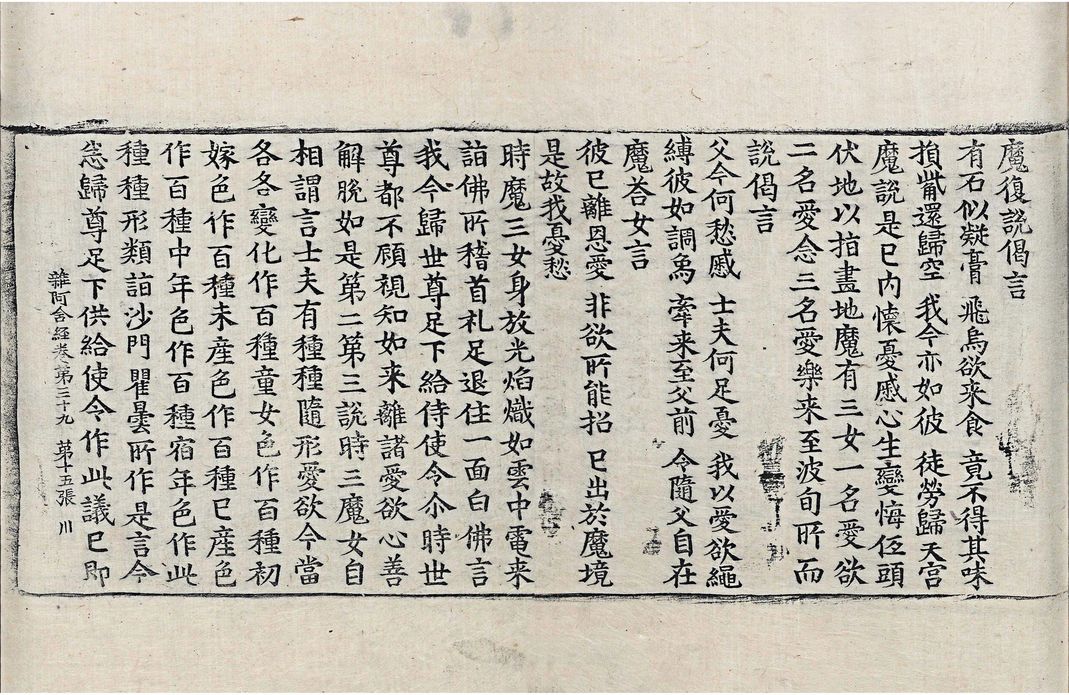 魔復說偈言
有石似凝膏 飛烏欲来食 竟不得其味
損觜還歸空 我今亦如彼 徒勞歸天宮
魔說是已内懷憂慼心生變悔低頭
伏地以指畫地魔有三女一名愛欲
二名愛念三名愛樂来至波旬所而
說偈言
父今何愁慼 士夫何足憂 我以愛欲繩
縛彼如調鳥 牽来至父前 令隨父自在
魔荅女言
彼已離恩愛 非欲所能招 已出於魔境
是故我憂愁
時魔三女身放光焰熾如雲中電来
詣佛所稽首礼足退住一面白佛言
我今歸世尊足下給侍使令尒時世
尊都不顧視知如来離諸愛欲心善
解脫如是第二第三說時三魔女自
相謂言士夫有種種隨形愛欲今當
各各變化作百種童女色作百種初
嫁色作百種未産色作百種已産色
作百種中年色作百種宿年色作此
種種形類詣沙門瞿曇所作是言今
悉歸尊足下供給使令作此議已即
雜阿含経卷第三十九 第十五張 川